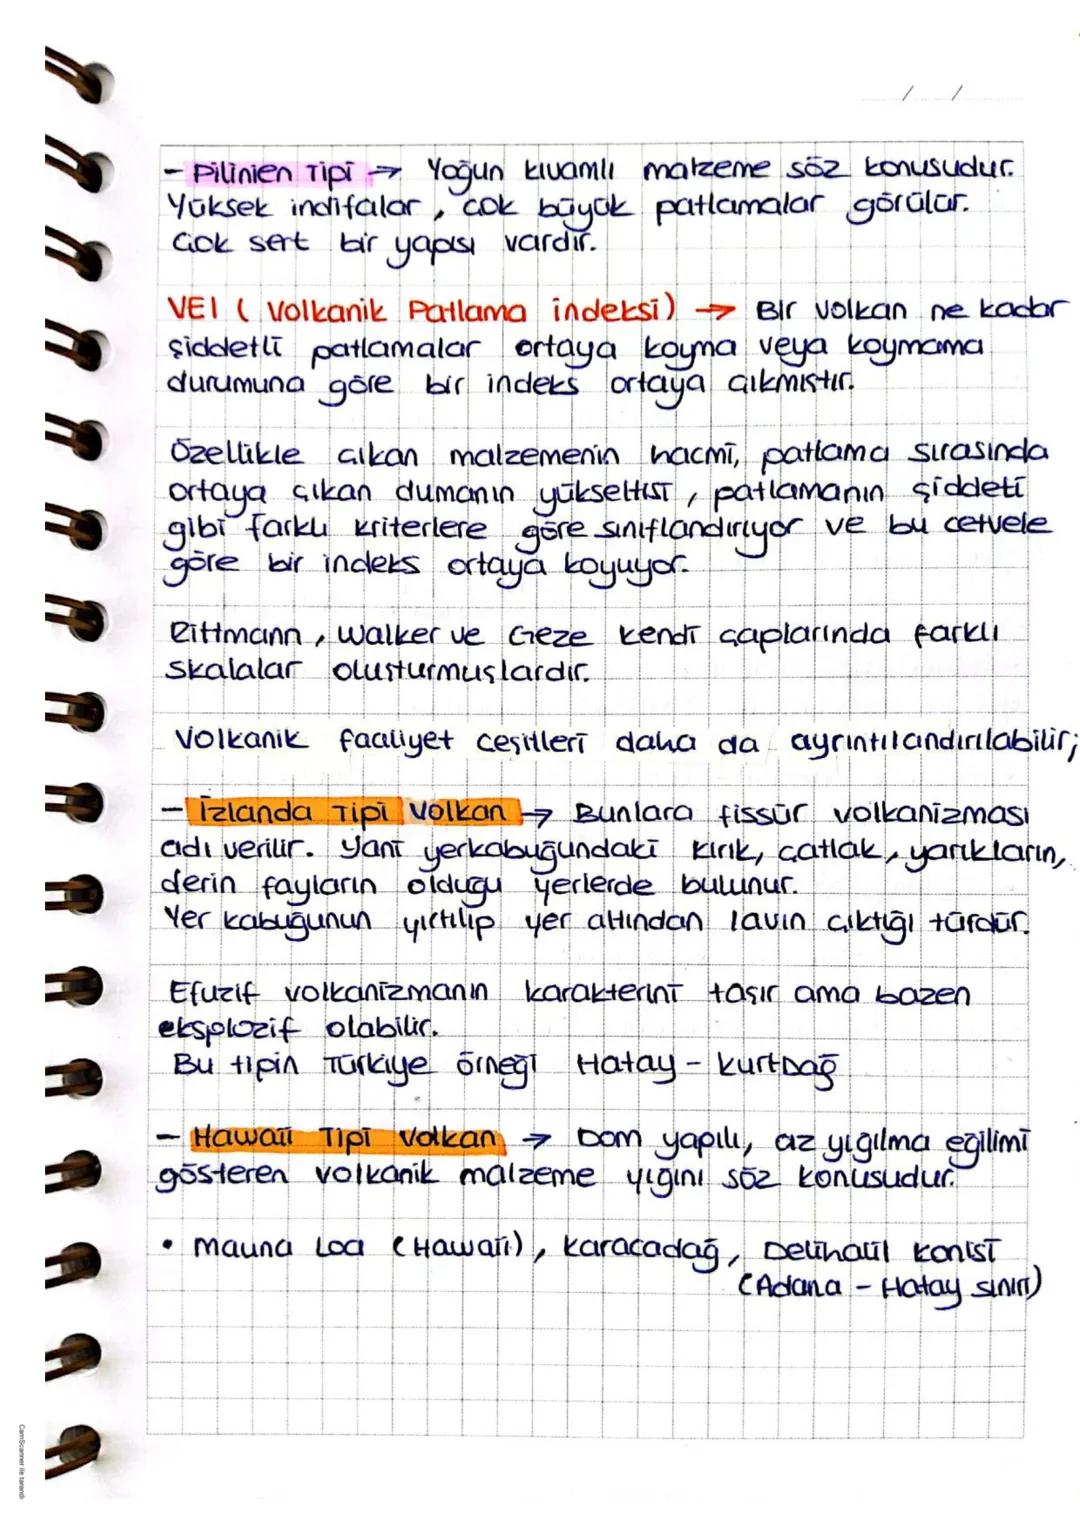 / /
- Pilinien Tipi → Yoğun kıvamlı malzeme söz konusudur.
Yüksek indifalar, çok büyük patlamalar görülür.
Çok sert bir yapısı vardır.
VEI ( Volkanik Patlama indeksi) → Bir volkan ne kadar
şiddetli patlamalar ortaya koyma veya koymama
durumuna göre bir indeks ortaya çıkmıştır.
Özellikle çıkan malzemenin hacmi, patlama sırasında
ortaya çıkan dumanın yükseltisi, patlamanın şiddeti
gibi farklı kriterlere göre sınıflandırıyor ve bu cetvele
göre bir indeks ortaya koyuyor.
Rittmann, Walker ve Geze kendi çaplarında farklı
skalalar oluşturmuşlardır.
Volkanik faaliyet çeşitleri daha da ayrıntılandırılabilir;
- İzlanda Tipi Volkan → Bunlara fissür volkanizması
adı verilir. Yani yerkabuğundaki kırık, çatlak, yarıkların,
derin fayların olduğu yerlerde bulunur.
Yer kabuğunun yırtılıp yer altından lavın çıktığı türdür.
Efuzif volkanizmanın karakterini taşır ama bazen
eksplozif olabilir.
Bu tipin Türkiye örneği Hatay - KurtDağ
- Hawaii Tipi Volkan → Dom yapılı, az yığılma eğilimi
gösteren volkanik malzeme yığını söz konusudur.
• Mauna Loa (Hawaii), Karacadağ, Delihalil konisi
(Adana - Hatay sınırı)
CamScanner ile tarandı